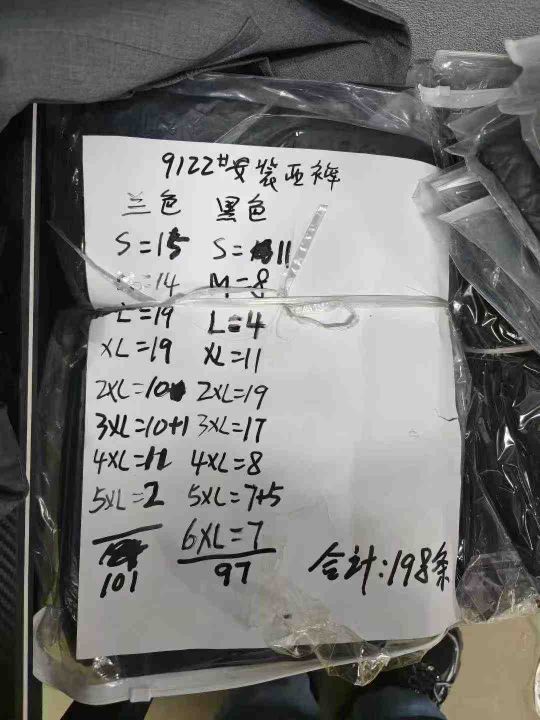 9122#安装西裤
兰色 黑色
S=15 S=11
=14 M=8
L=19 L=4
XL=19 XL=11
2XL=10 2XL=19
3XL=10+1 3XL=17
4XL=11 4XL=8
5XL=2 5XL=7+5
6XL=7
101 97 合计:198条